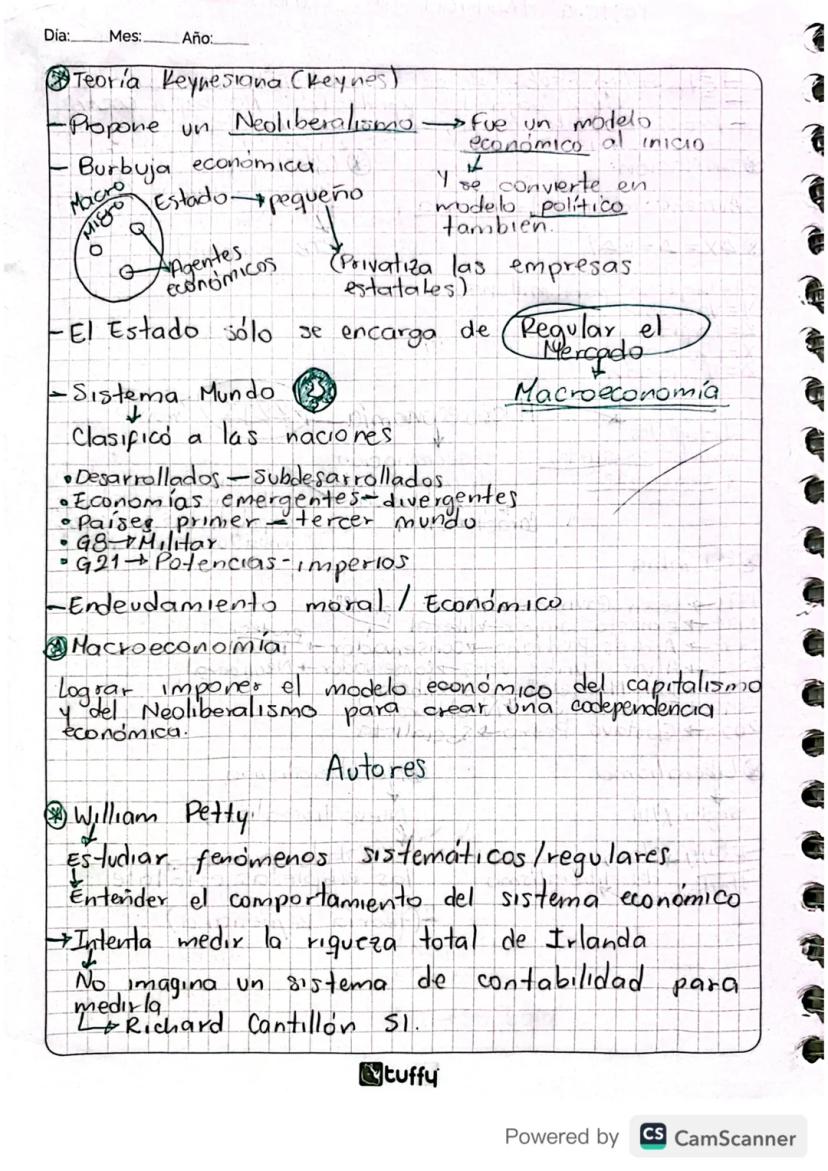 Día: Mes: Año:
Teoría Keynesiana (Keynes)
- Propone un Neoliberalismo → Fue un modelo
económico al inicio
↓
Y se convierte en
modelo político
también.
- Burbuja económica
Macro
Micro
Agentes
económicos
Estado → pequeño
(Privatiza las empresas
estatales)
- El Estado sólo se encarga de Regular el
Mercado
↓
Macroeconomía
- Sistema Mundo
↓
Clasificó a las naciones
• Desarrollados - subdesarrollados
• Economías emergentes - divergentes
• Países primer - tercer mundo
• G8 → Militar
• G21 → Potencias - imperios
- Endeudamiento moral / Económico
Macroeconomía
Lograr imponer el modelo económico del capitalismo
y del Neoliberalismo para crear una codependencia
económica.
Autores
William Petty
↓
Estudiar fenómenos sistemáticos/regulares
↓
Entender el comportamiento del sistema económico
→ Intenta medir la riqueza total de Irlanda
↓
No imagina un sistema de contabilidad para
medirla
↳ Richard Cantillón SI.
tuffy
Powered by CS CamScanner